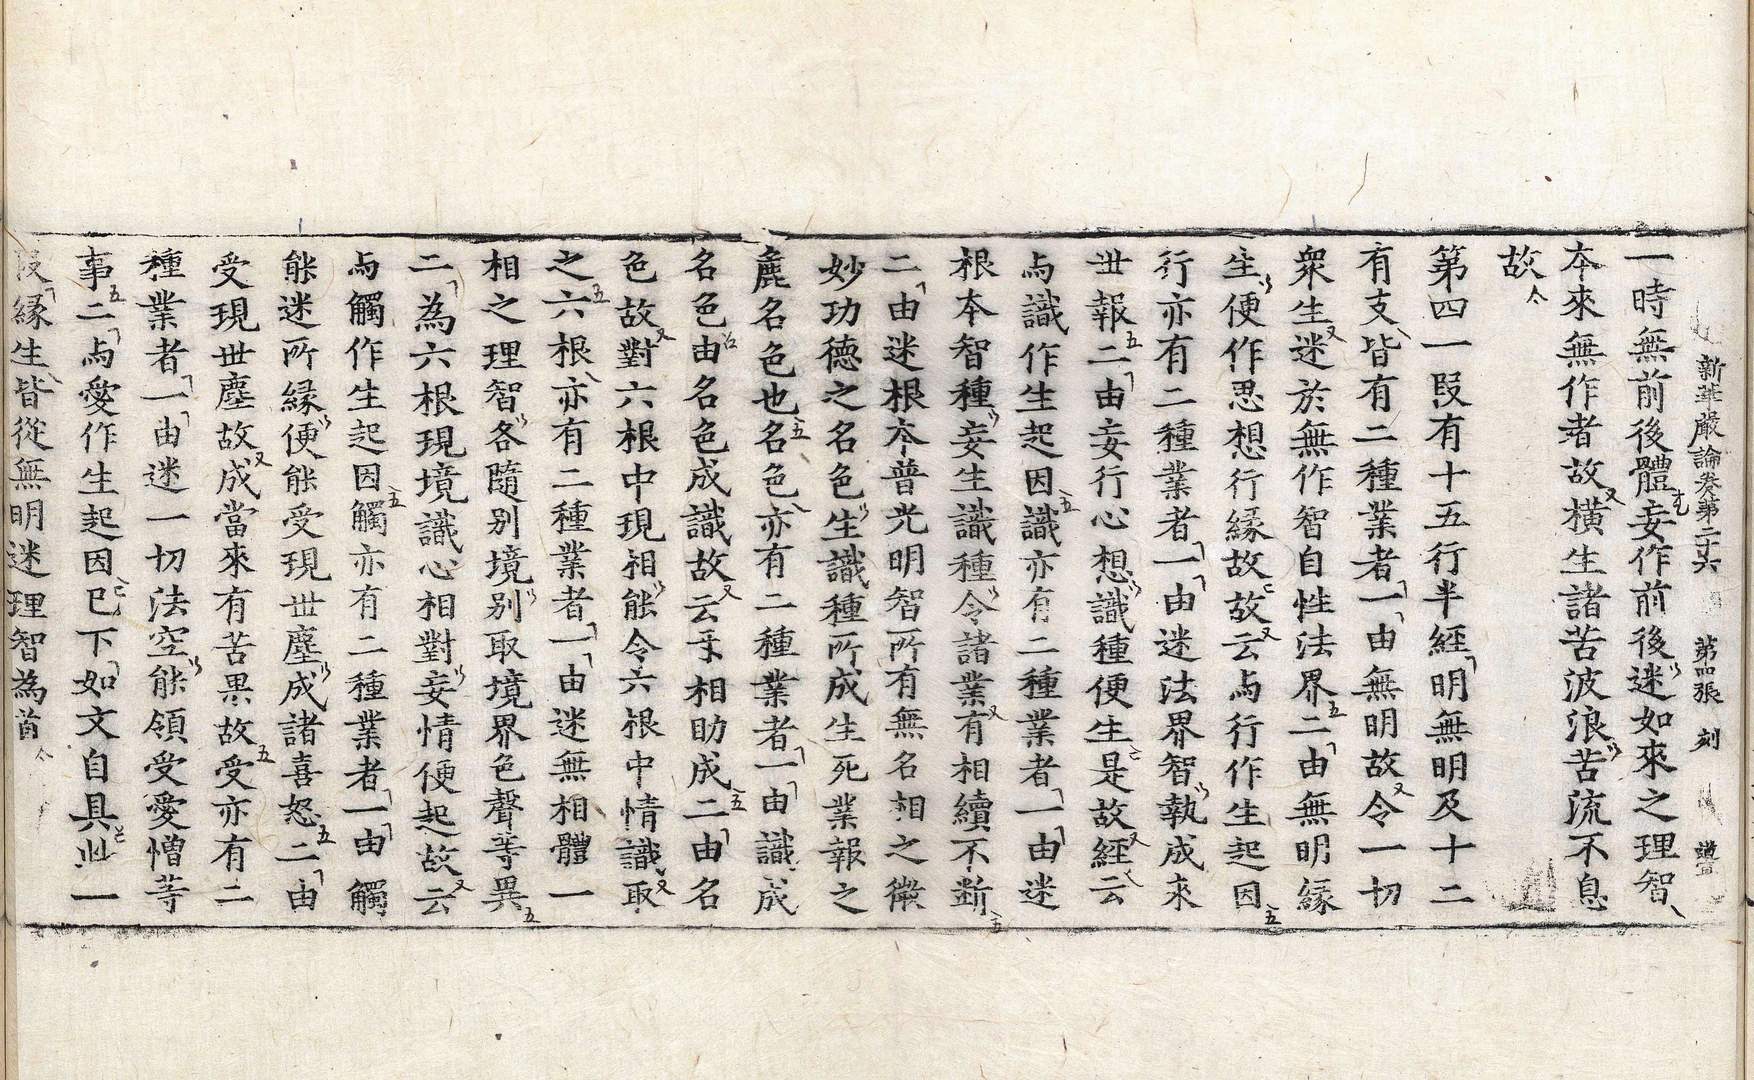 新華嚴論卷第二十六 第四張 刻
一時無前後體妄作前後迷如來之理智
本來無作者故橫生諸苦波浪苦流不息
故
第四一段有十五行半經明無明及十二
有支皆有二種業者一由無明故令一切
衆生迷於無作智自性法界二由無明緣
生便作思想行緣故故云与行作生起因
行亦有二種業者一由迷法界智執成來
世報二由妄行心想識種便生是故經云
与識作生起因識亦有二種業者一由迷
根本智種妄生識種令諸業有相續不斷
二由迷根本普光明智所有無名相之微
妙功德之名色生識種所成生死業報之
麁名色也名色亦有二種業者一由識成
名色由名色成識故云互相助成二由名
色故對六根中現相能令六根中情識取
之六根亦有二種業者一由迷無相體一
相之理智各隨別境別取境界色聲等異
二為六根現境識心相對妄情便起故云
与觸作生起因觸亦有二種業者一由觸
能迷所緣便能受現世塵成諸喜怒二由
受現世塵故成當來有苦果故受亦有二
種業者一由迷一切法空能領受愛憎等
事二与愛作生起因已下如文自具此一
段緣生皆從無明迷理智為首